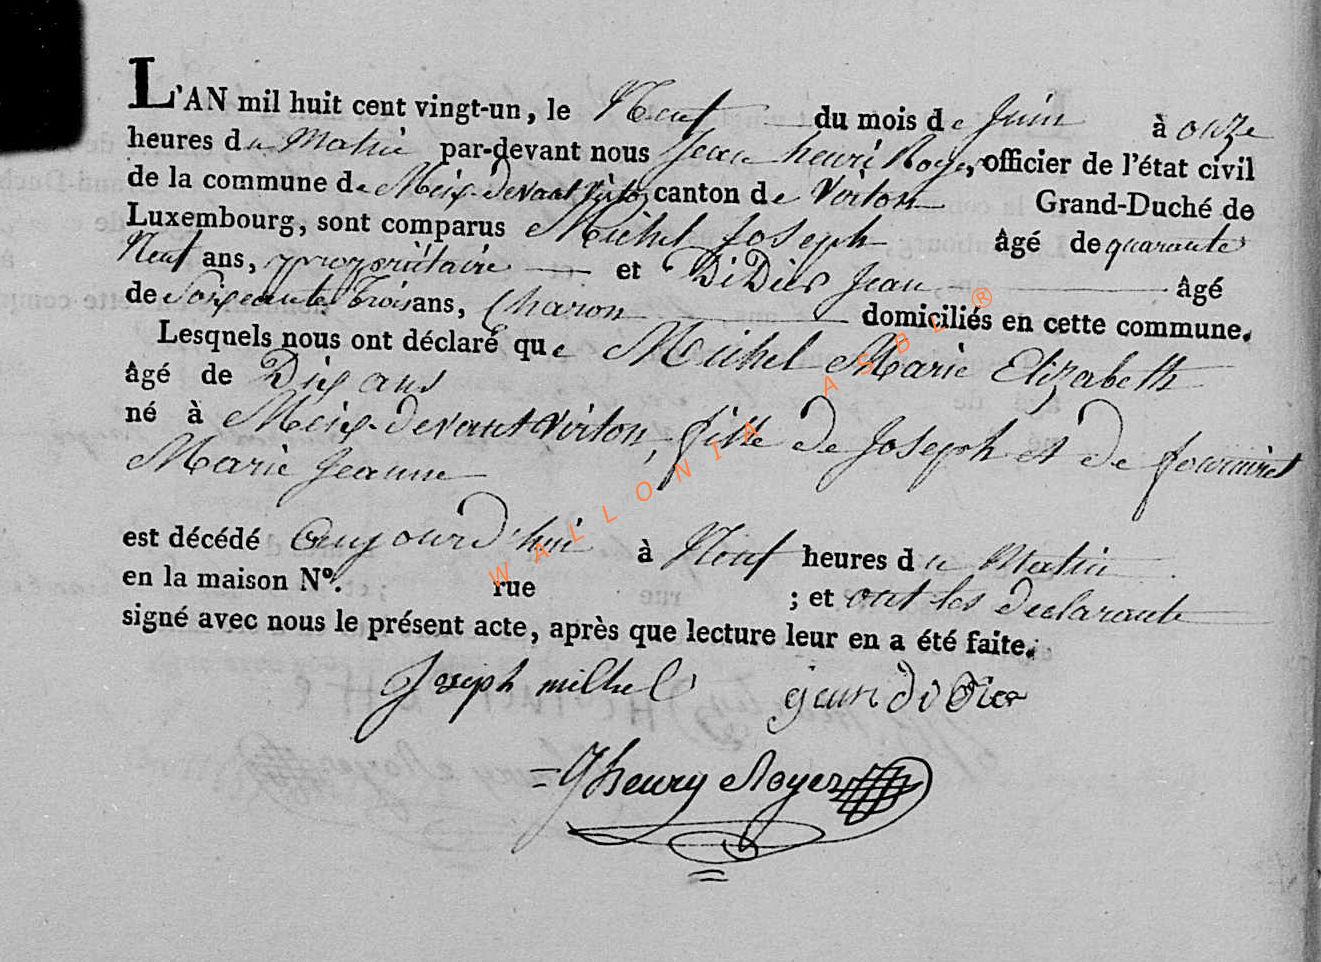 L'AN mil huit cent vingt-un, le Neuf du mois de Juin à onze
heures du Matin par-devant nous Jean henri Royer, officier de l'état civil
de la commune de Meix-devant Virton canton de Virton Grand-Duché de
Luxembourg, sont comparus Michel Joseph âgé de quarante
Neuf ans, propriétaire et DiDier Jean âgé
de Soixante Trois ans, Charon domiciliés en cette commune.
Lesquels nous ont déclaré que Michel Marie Elizabeth
âgé de Dix ans
né à Meix-devant Virton, fille de Joseph et de fourniret
Marie Jeanne
est décédé aujourd'hui à Neuf heures du Matin
en la maison N°. rue ; et ont les declarants
signé avec nous le présent acte, après que lecture leur en a été faite.
Joseph michel jean didier
Jhenry Royer
WALLONIA ASBL ®